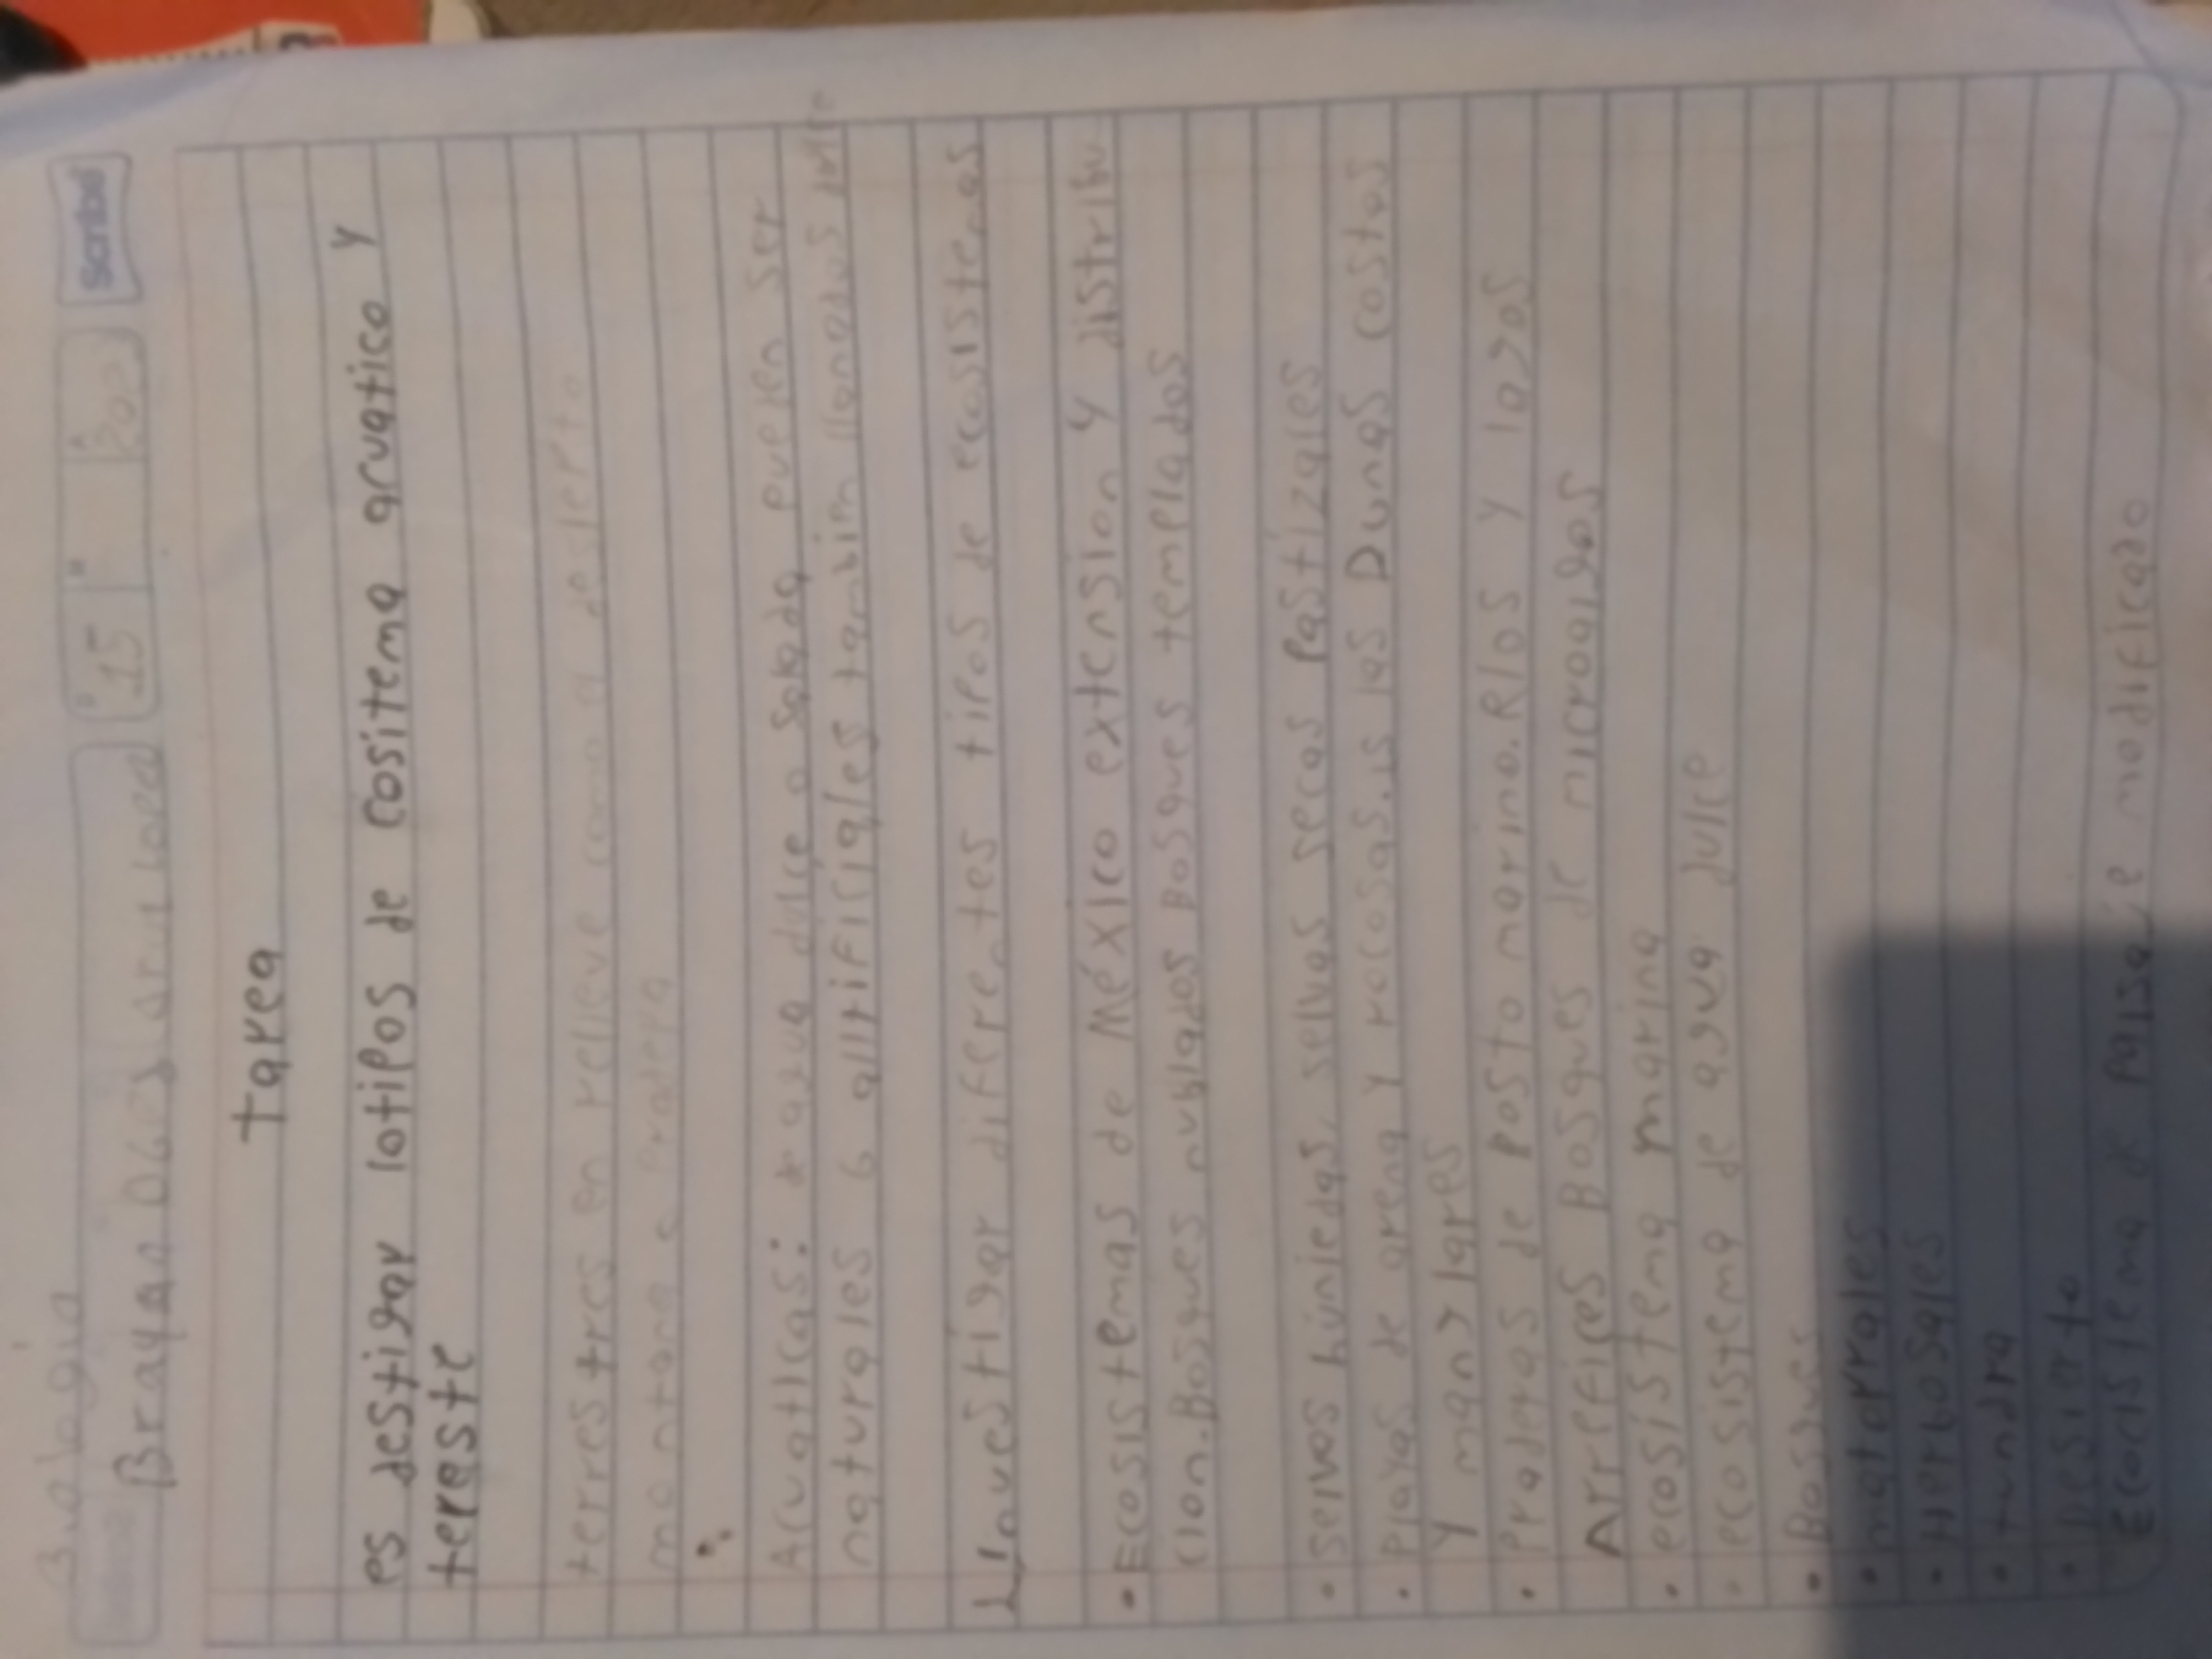 Biología
Brayan
15
Scribe
Tarea
es destigar lotipos de Cositema acuatico y
tereste
terrestres en relieve como a desierto
montana o Pradera
Acuaticas: agua dulce o salada pueden ser
naturales o altificiales tambien llamados
Investigar diferentes tipos de ecosistemas
• Ecosistemas de México extension y distribu
cion. Bosques nublados Bosques templados
• selvas húmedas, selvas secas Pastizales
• Playas de arena y rocosas. las Dunas costas
y manglares
• Praderas de Posto marino. Rios y lagos
Arrefices Bosques de microalgos
• ecosistema marina
• ecosistema de agua dulce
• Bosques
• materrales
• Herbosales
• tundra
• Desierto
Ecocistema de Paisaje modificado